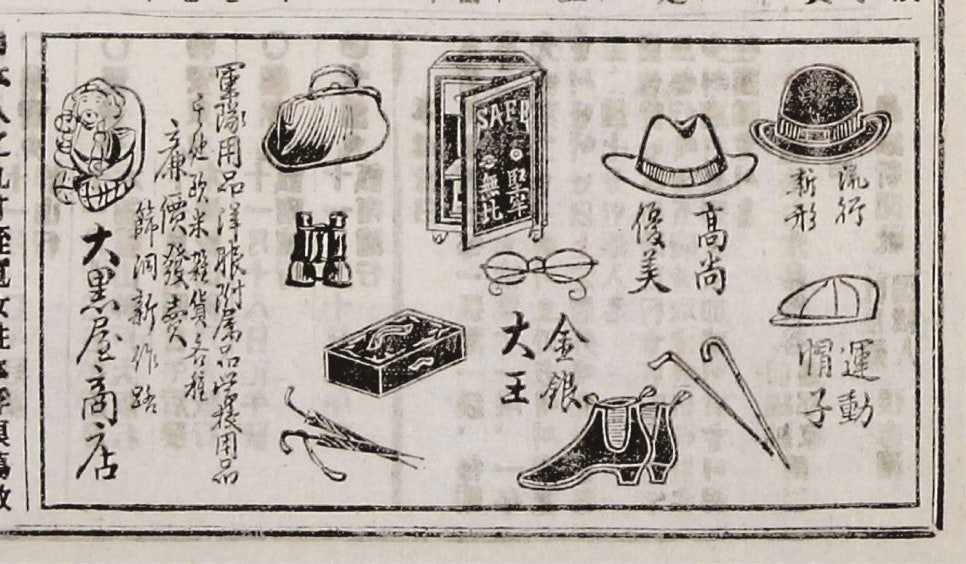 流行
新形
高尚
優美
運動
帽子
SAFE
堅牢
無比
金銀
大王
軍隊用品 洋服附属品 学校用品
其他欧米雑貨各種
廉價發賣
篩洞新作路
大黒屋商店